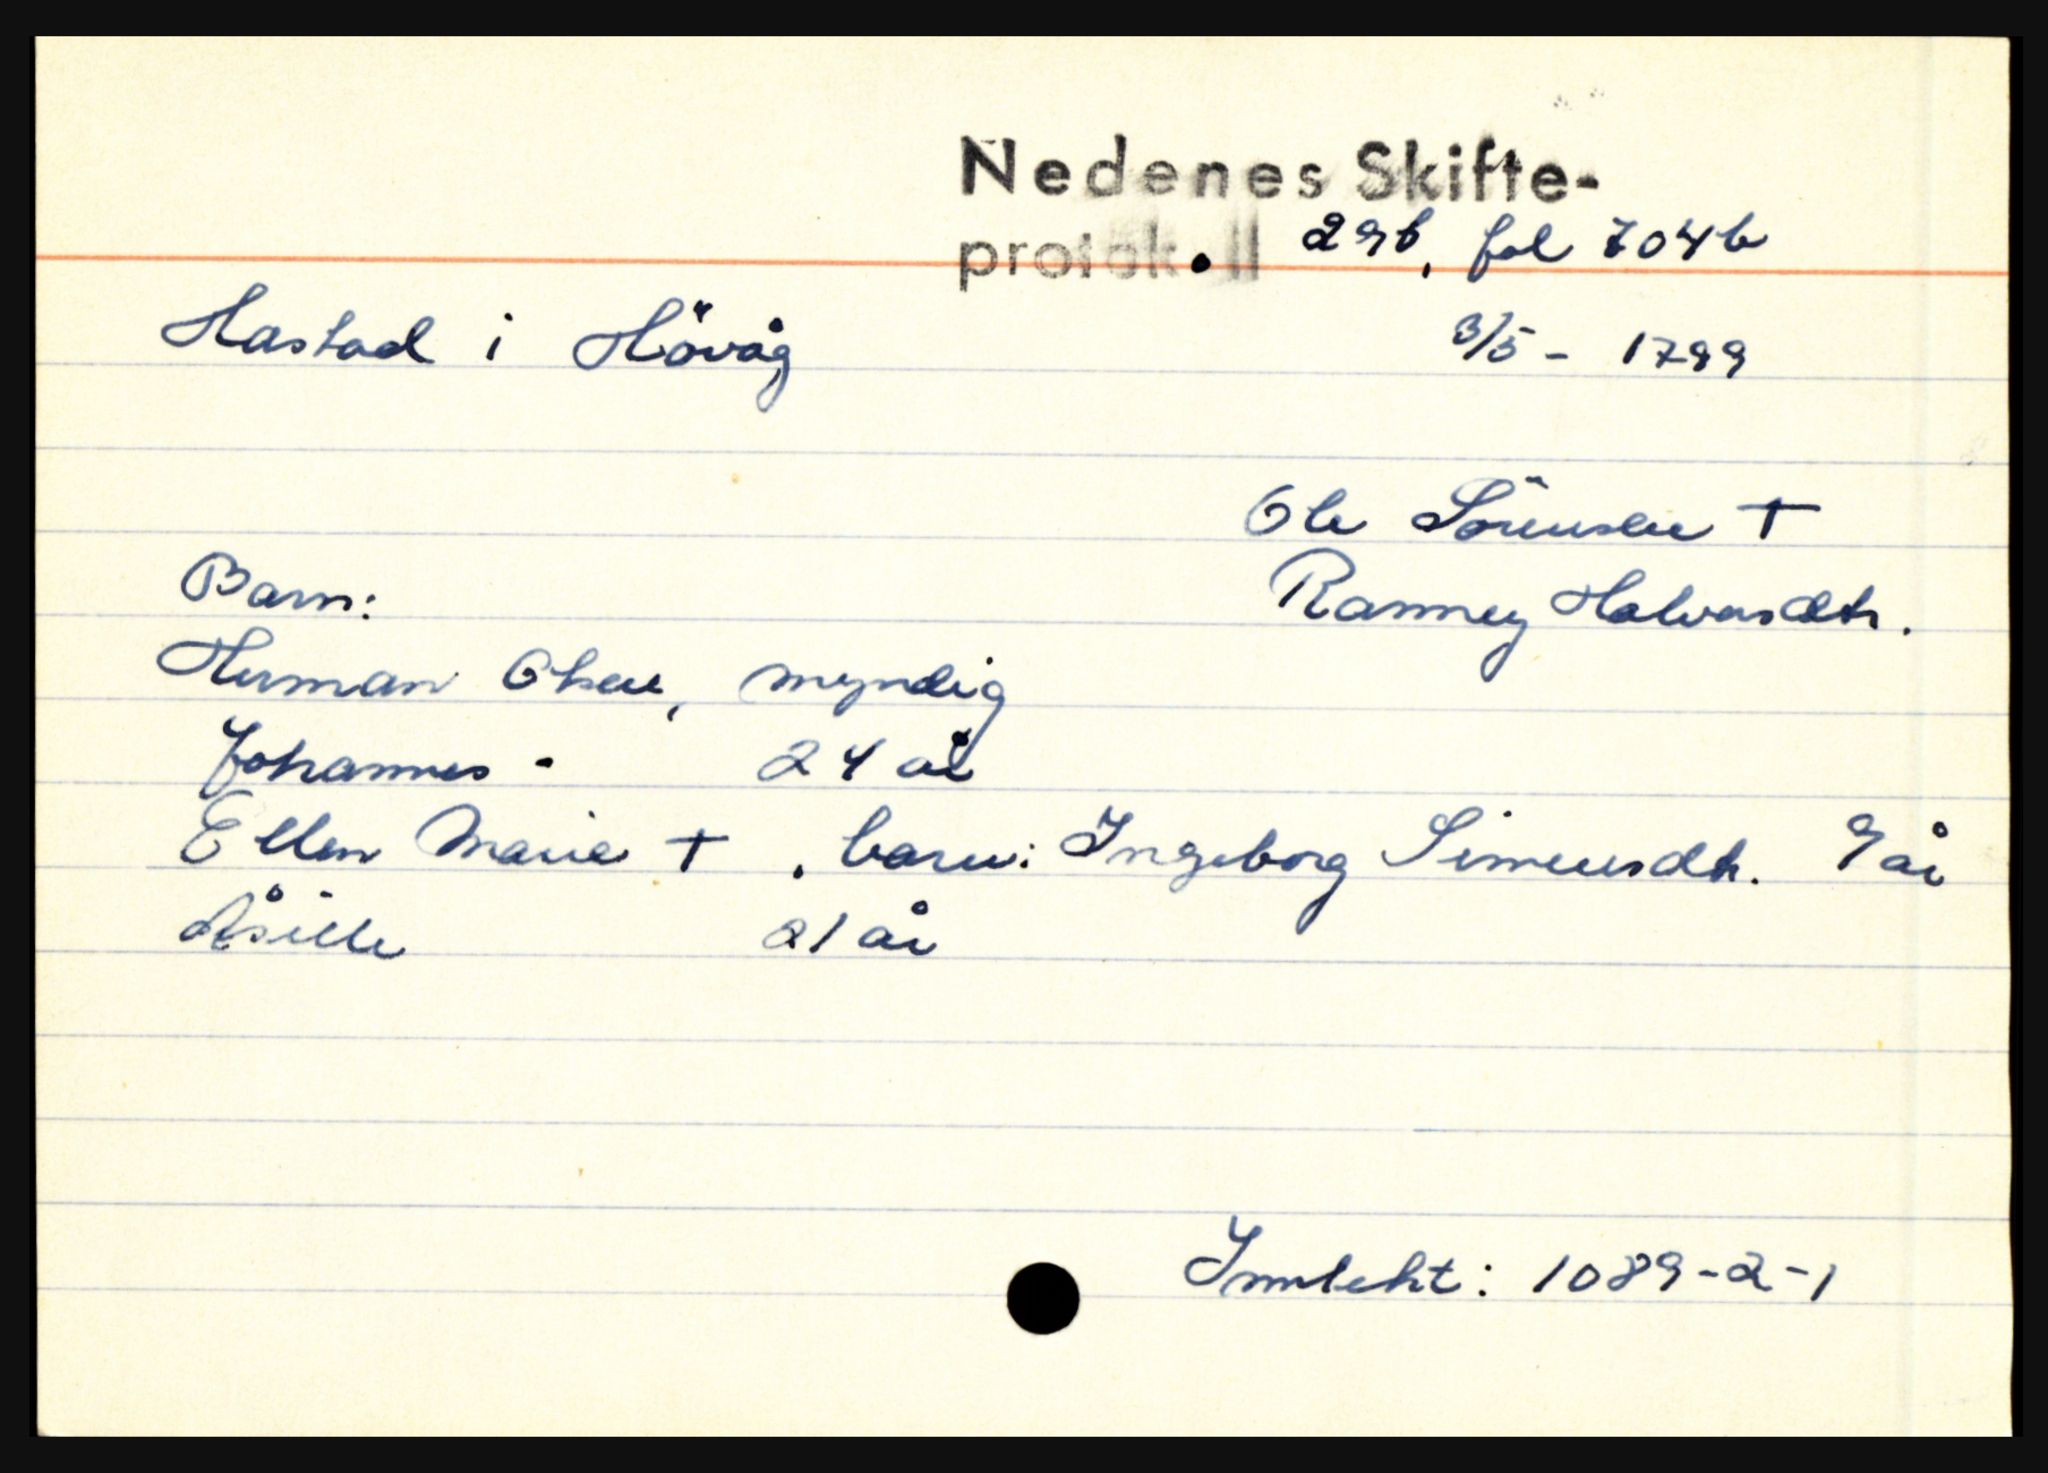 Nedenes Skifte-
protokoll 29b, fol 704b
Hastad i Hövåg 3/5 - 1799
Ole Sörensen †
Barn: Ranney Halvorsdtr.
Herman Olsen, myndig
Johannes - 24 år
Ellen Marie †, barn: Ingeborg Simensdtr. 9 år
Åsille 21 år
Inntekt: 1089-2-1